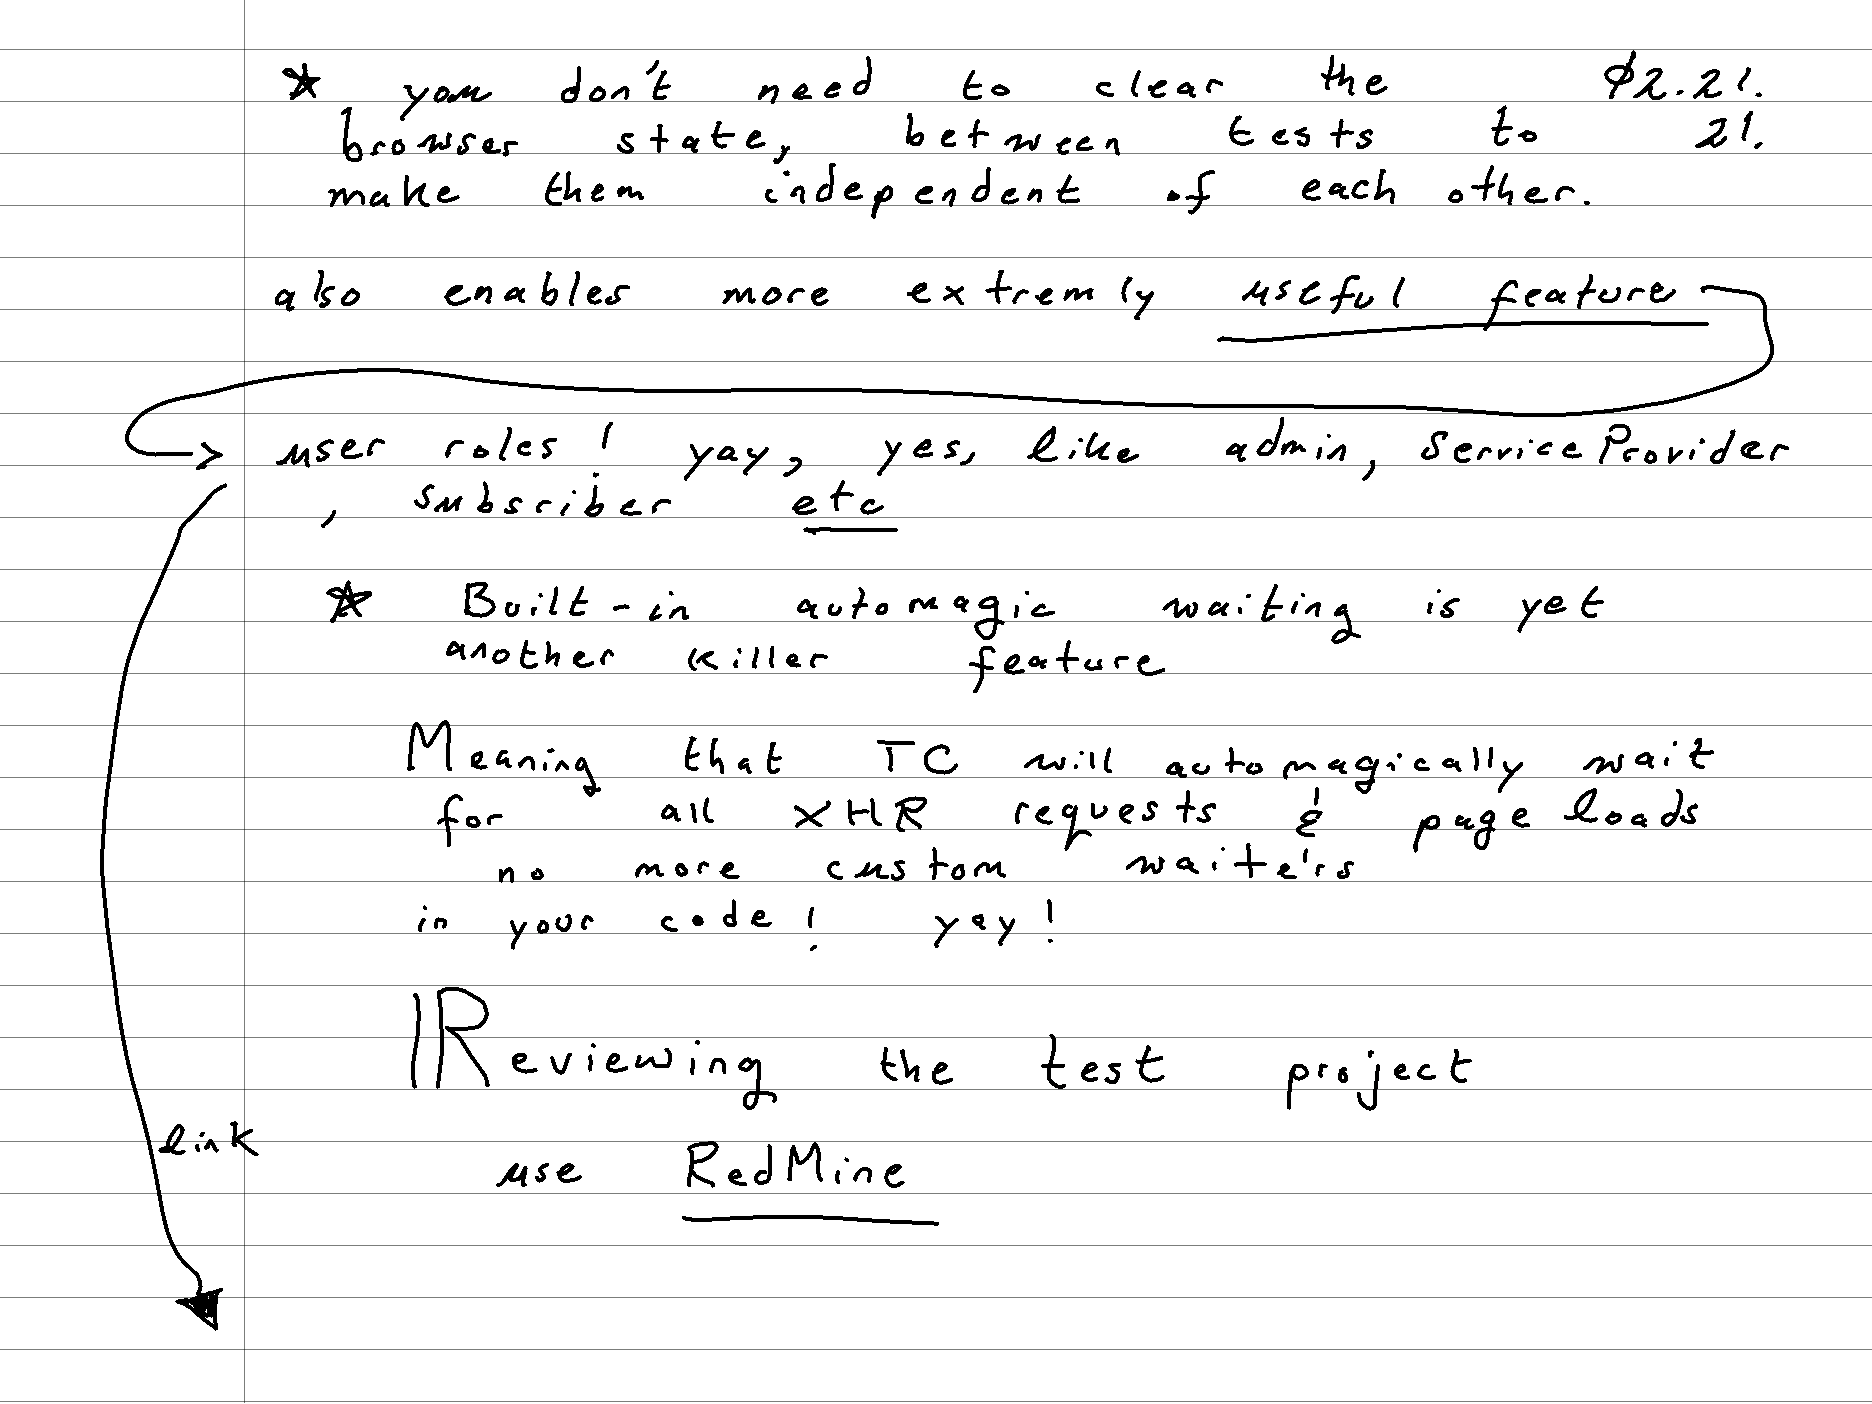 * you don't need to clear the 02.21.
browser state, between tests to 21.
make them independent of each other.
also enables more extremly useful feature
user roles! yay, yes, like admin, ServiceProvider
, subscriber etc
* Built-in automagic waiting is yet
another killer feature
Meaning that TC will automagically wait
for all XHR requests & page loads
no more custom waite'rs
in your code! yay!
Reviewing the test project
link
use RedMine